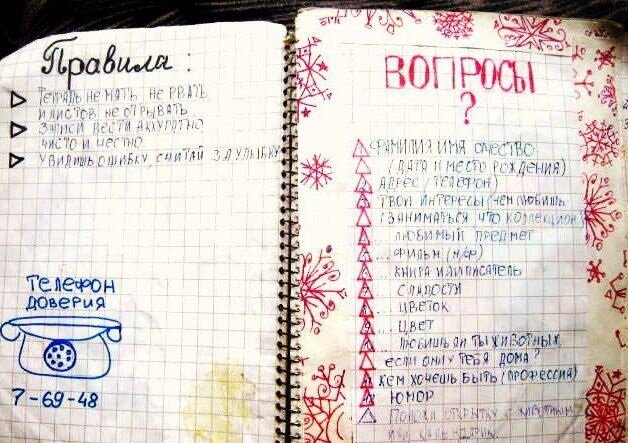 Правила:
Тетрадь не мять, не рвать
и листов не отрывать
Записи вести аккуратно
чисто и честно.
Увидишь ошибку, считай за улыбку
Телефон
доверия
7-69-48
ВОПРОСЫ
?
Фамилия имя очество
(дата и место рождения)
Адрес (телефон)
Твои интересы (чем любишь
заниматься что коллекцион
любимый предмет
...фильм (м/ф)
...книга или писатель
... сладости
... цветок
... цвет
любишь ли ты животных,
если они у тебя дома?
Кем хочешь быть (профессия)
Юмор
открытку с
или